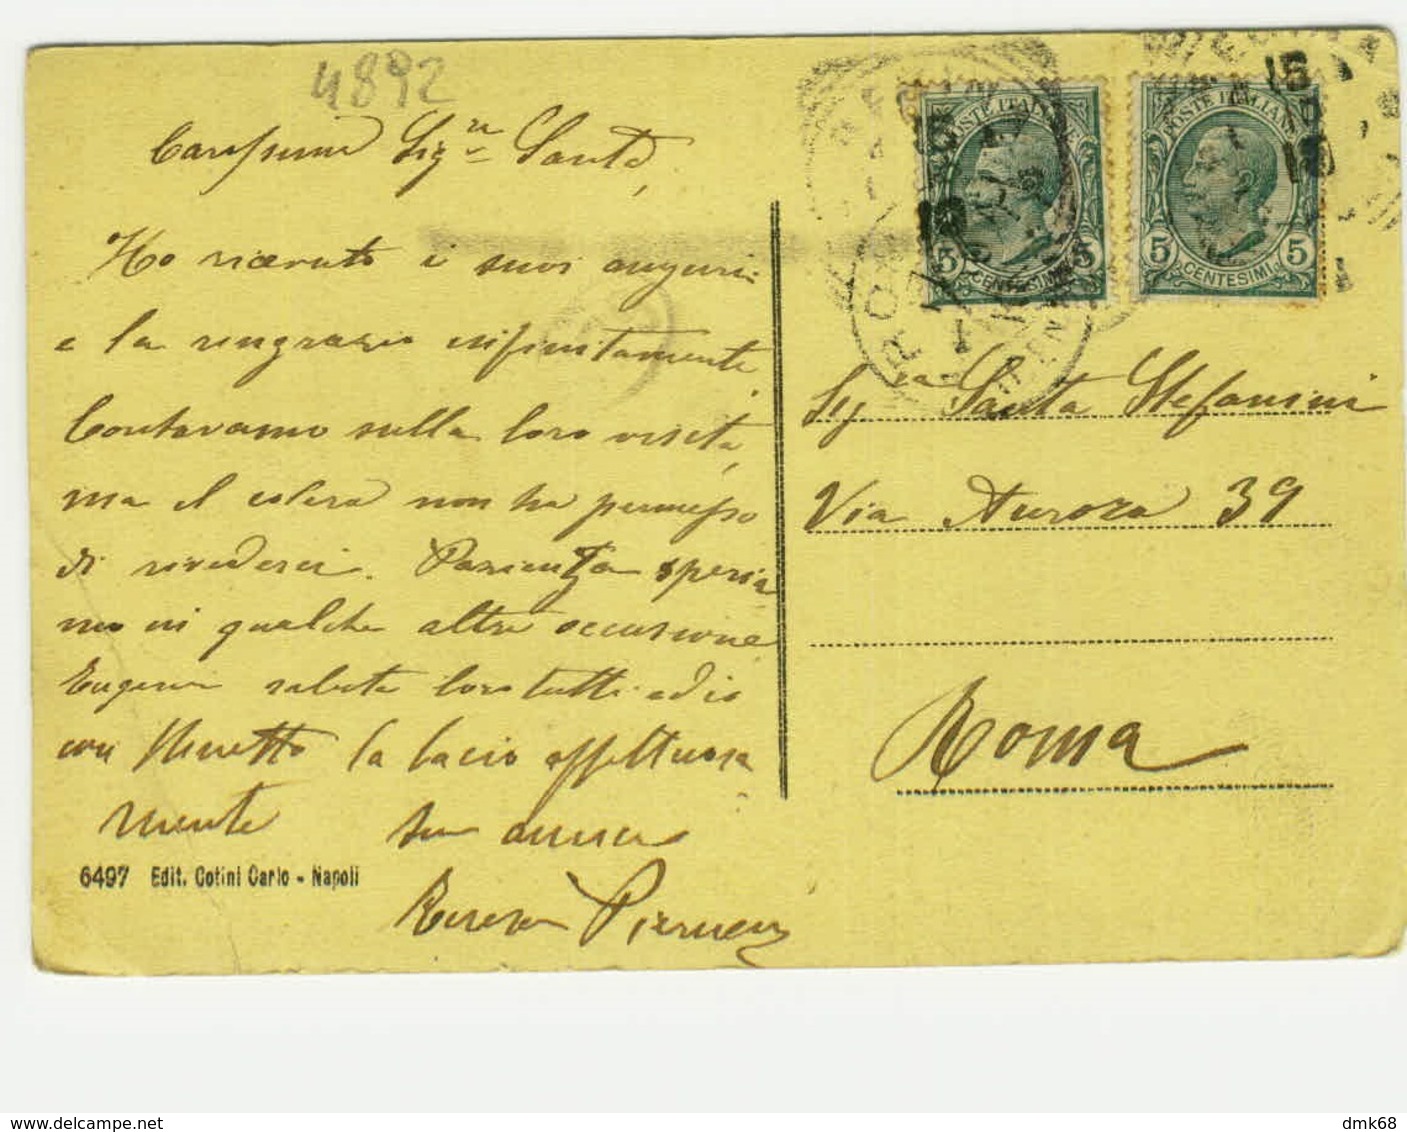 4892
Carissima Sig.ra Santa,
Ho ricevuto i suoi auguri
e la ringrazio infinitamente
Contavamo sulla loro visita,
ma il colera non ha permesso
di rivederci. Pazienza speria
mo in qualche altra occasione
Eugenia saluta loro tutti ed io
con la bacio affettuosa
mente Sua amica
6497 Edit. Cotini Carlo - Napoli
POSTE ITALIANE
5 CENTESIMI 5
POSTE ITALIANE
5 CENTESIMI 5
Sig.ra Santa Stefanini
Via Aurora 39
Roma
delcampe.net
dmk68